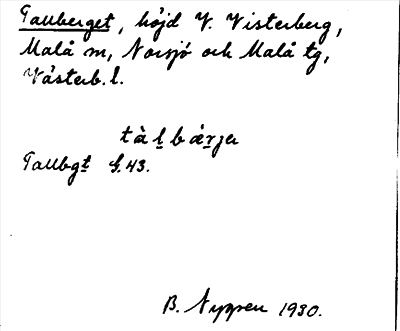 Tallberget, höjd V. Visterberg,
Malå sn, Norsjö och Malå tg,
Västerb. l.
tàḻbæ̀ṟjer
Tallbgt G.43.
B. Nyman 1930.